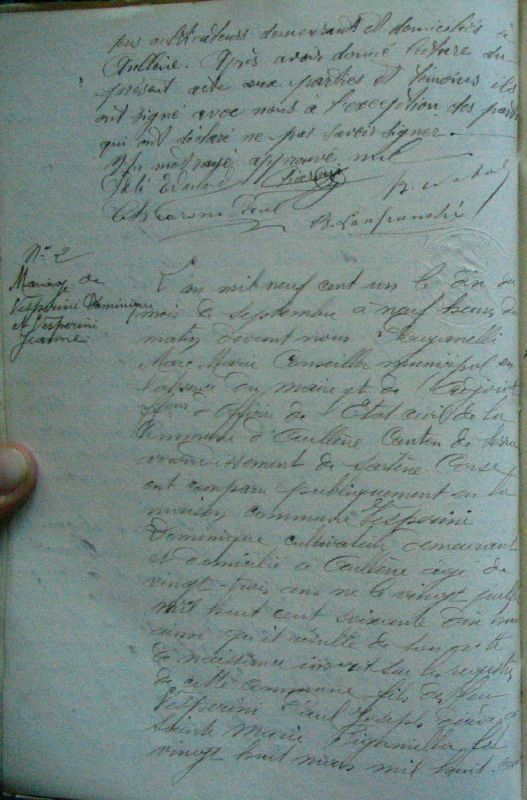 tous cultivateurs demeurant et domiciliés à
Aullène. Après avoir donné lecture du
présent acte aux parties et témoins ils
ont signé avec nous à l'exception des parties
qui ont déclaré ne pas savoir signer.
Un mot rayé approuvé nul
B. Lanfranchi
N° 2
Mariage de
Vesperini Dominique
et Vesperini
Jeanne
L'an mil neuf cent un le dix du
mois de Septembre à neuf heures du
matin devant nous
Marc Marie Conseiller municipal en
l'absence du maire et de l'adjoint
d'Officier de l'Etat civil de la
Commune d'Aullène Canton de Serra
arrondissement de Sartène Corse
ont comparu publiquement en la
maison commune Vesperini
Dominique cultivateur demeurant
et domicilié à Aullène agé de
vingt-trois ans né le vingt
mil huit cent soixante dix huit
ainsi qu'il résulte de son acte
de naissance inscrit sur les registres
de cette commune fils de feu
Vesperini Paul Joseph décédé à
Sainte Marie le
vingt huit mars mil huit cent